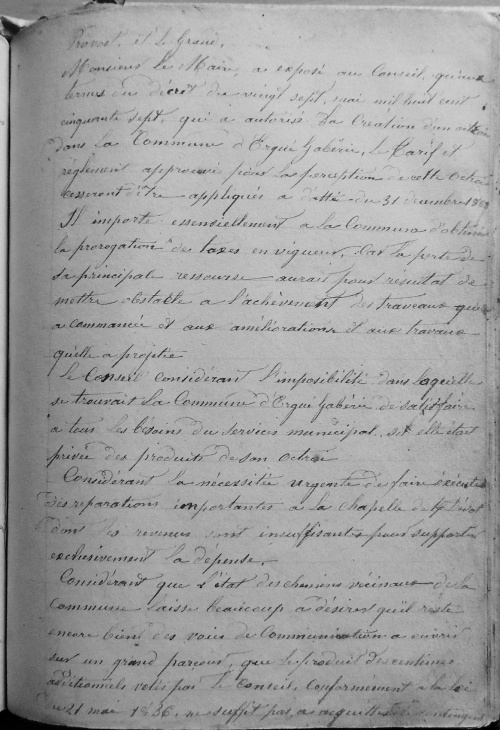 Provost, et Le Grand.
Monsieur le Maire, a exposé au Conseil, qu'aux
termes du décret du vingt sept, mai mil huit cent
cinquante sept, qui a autorisé la Création d'un octroi
dans la Commune d'Ergué Gabéric, le Tarif et
réglement approuvé pour la perception de cette Octroi
cesseront d'être appliqués à datté du 31 decembre
Il importe essensiellement a la Commune d'obtenir
la prorogation des taxes en vigueur, Car la perte de
sa principale ressourse aurait pour résultat de
mettre obstable a l'achèvement des traveaux que
a commancée et aux améliorations et aux travaux
qu'elle a projetée
Le Conseil considérant l'imposibilité dans laquelle
se trouvait la Commune d'Ergué Gabéric de satisfaire
a tous les besoins du services municipal, si elle était
privée des produits de son Octroi
Considérant la nécessitée urgente de faire éxécuter
des réparations importantes à la Chapelle de
dont les revenus sont insuffisantes pour supporter
exclusivement la depense.
Considérant que l'état des chemins vécinaux de la
Commune laisse beaucoup à désirer qu'il reste
encore bien des voies de Communication a ouvrir
sur un grand parcout, que le produit des centimes
additionnels votés par le Conseil, Conformément à la loi
du 21 mai 1836, ne suffit pas a acquitter le contingent